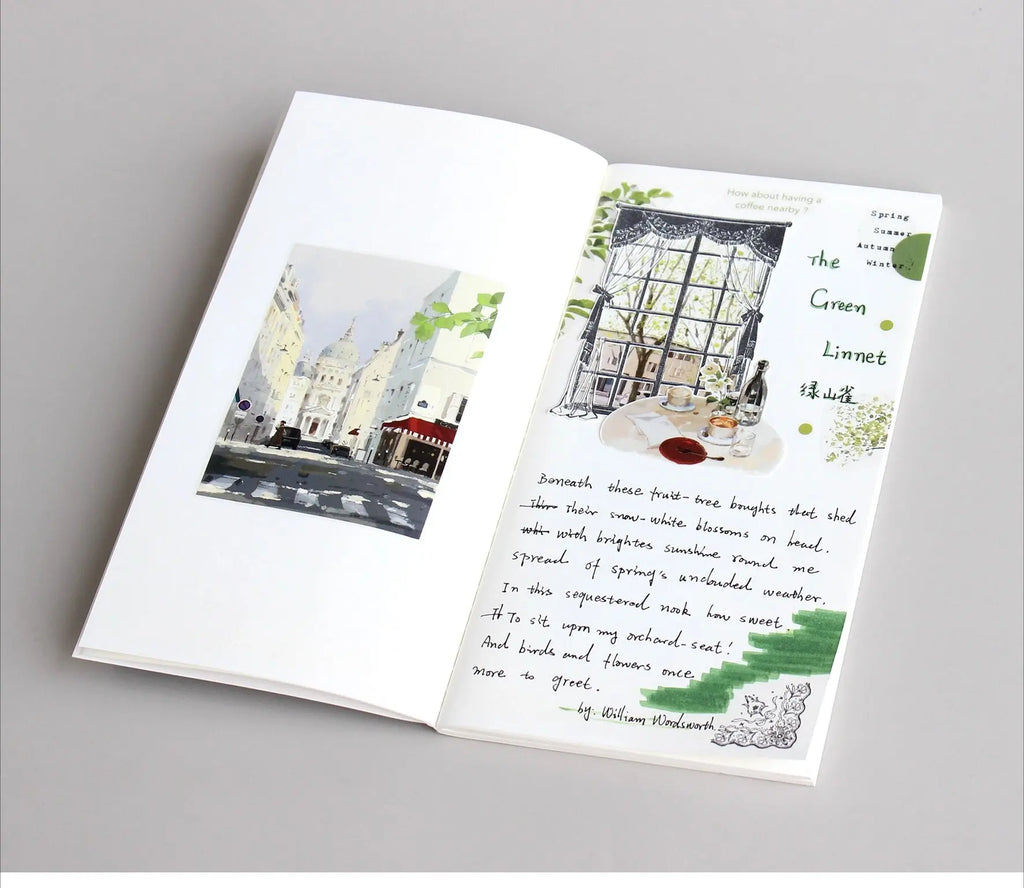 How about having a
coffee nearby ?
Spring
Summer
Autumn
Winter.
The
Green
Linnet
绿山雀
Beneath these fruit-tree boughts that shed
This Their snow-white blossoms on head.
whi with brightes sunshine round me
spread of spring's unclouded weather.
In this sequestered nook how sweet
It To sit upon my orchard-seat!
And birds and flowers once
more to greet.
by: William Wordsworth